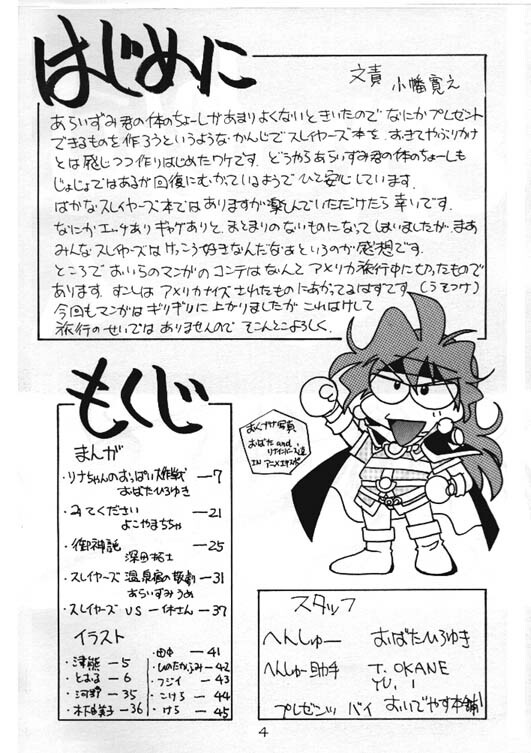 はじめに
文責 小幡寛之
あらいずみ君の体のちょーしがあまりよくないときいたので なにかプレゼント
できるものを作ろうというような かんじでスレイヤーズ本を おきてやぶりかけ
とは感じつつ作りはじめたワケです. どうやらあらいずみ君の体のちょーしも
じょじょではあるが回復にむかっているようで ひと安心しています.
ばかなスレイヤーズ本ではありますが楽しんでいただけたら 幸いです.
なにかエッチあり ギャグありと、まとまりのないものになってしまいましたが、まあ
みんなスレイヤーズはけっこう好きなんだなあというのが感想です.
ところで おいらのマンガのコンテは なんと アメリカ旅行中に切ったもので
あります. すこしは アメリカナイズされたものにあがってるはずです (うそつけ)
今回もマンガはギリギリに 上がりましたが これはけして
旅行のせいでは ありませんので そこんとこよろしく.
もくじ
まんが
・リナちゃんのおっぱい大作戦 —7
おばたひろゆき
・みてください —21
よこやまちちゃ
・御神説 —25
深田拓士
・スレイヤーズ 温泉宿の惨劇 —31
あらいずみうめ
・スレイヤーズ VS 一休さん —37
イラスト
・津熊 —5
・とおる —6
・河野 —35
・木下 —36
・田中 —41
・ひのたかふみ —42
・フジイ —43
・こけら —44
・けら —45
おくづけ写真
おばた and
リナインバース達
IN アニメエキスポ
スタッフ
へんしゅー おばたひろゆき
へんしゅー助手 T. OKANE
YU. I
プレゼンツ バイ おいでやす本舗
4